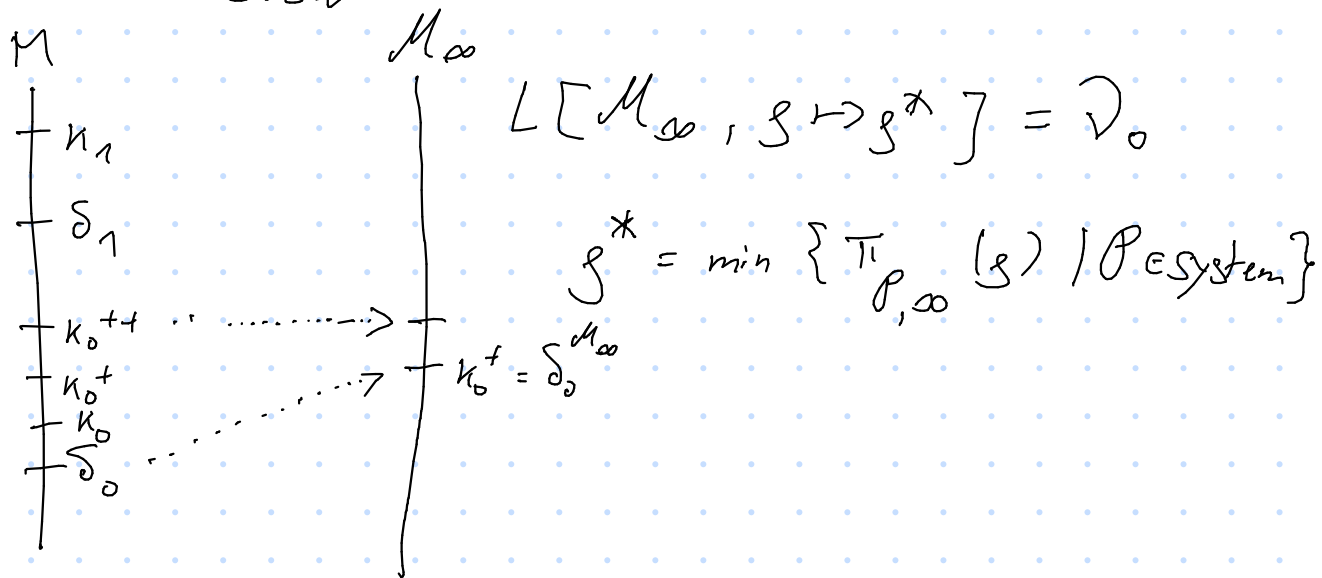 M
M∞
κ₁
δ₁
κ₀⁺⁺
κ₀⁺
κ₀
δ₀
κ₀⁺ = δ₀^M∞
L[M∞, ρ ↦ ρ*] = 𝒱₀
ρ* = min {π_P,∞ (ρ) | P ∈ system}